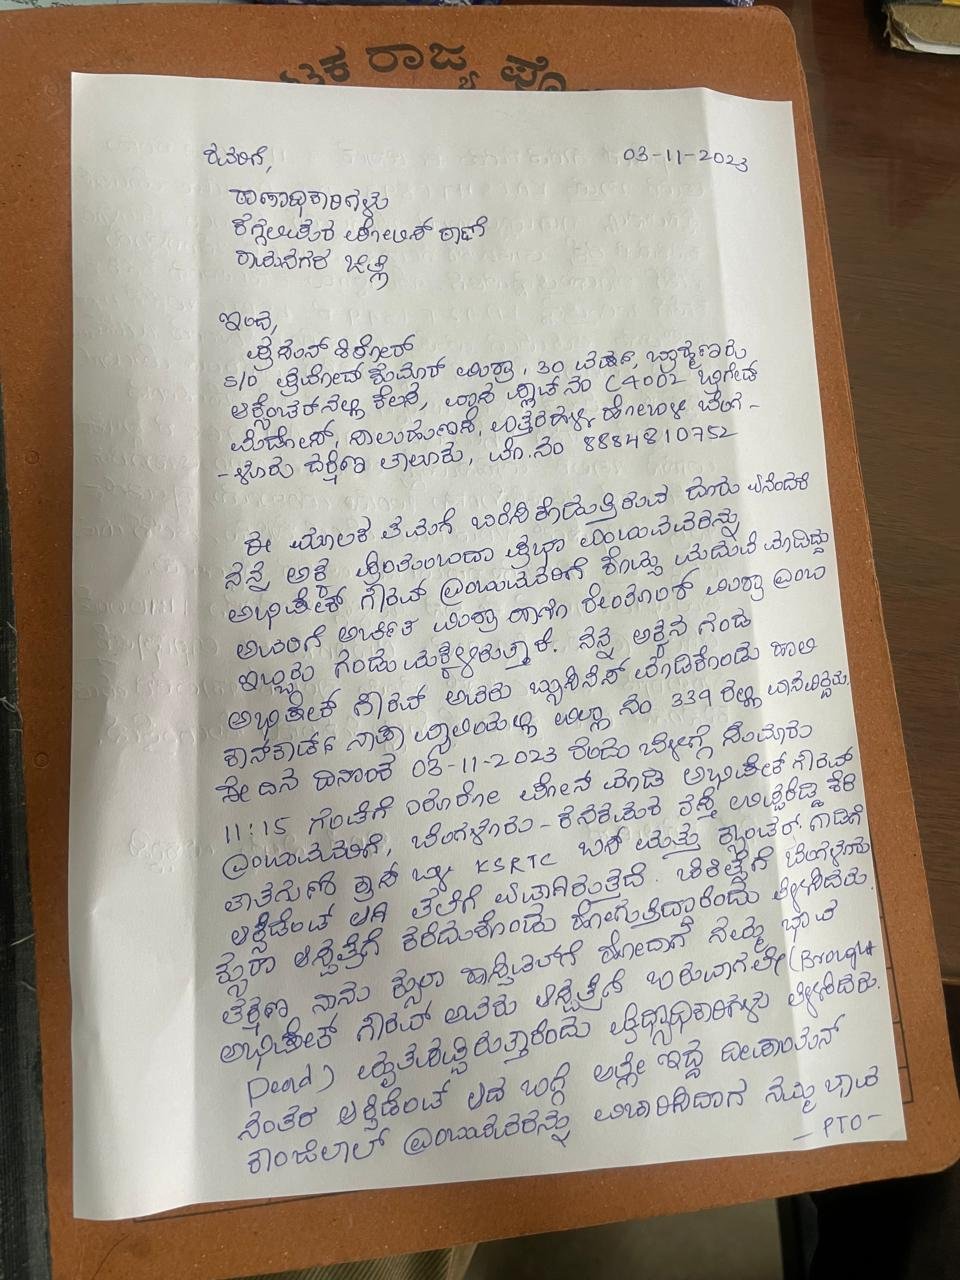 ಟಕ ರಾಜ್ಯ ಪೊ
ರವರಿಗೆ, 03-11-2023
ಠಾಣಾಧಿಕಾರಿಗಳು
ಕಗ್ಗಲೀಪುರ ಪೋಲೀಸ್ ಠಾಣೆ
ರಾಮನಗರ ಜಿಲ್ಲೆ
ಇಂದ,
ಪ್ರಿಯಾನ್ಸ್ ಕಿಶೋರ್
S/O ಪ್ರಮೋದ್ ಕುಮಾರ್ ಮಿಶ್ರಾ, 30 ವರ್ಷ, ಬ್ರಾಹ್ಮಣರು
ಆಕ್ಸೆಂಚರ್ ನಲ್ಲಿ ಕೆಲಸ, ವಾಸ ಪ್ಲಾಟ್ ನಂ C4002 ಬ್ರಿಗೇಡ್
ಮೆಡೋಸ್, ಸಾಲುಹುಣಸೆ, ಉತ್ತರಹಳ್ಳಿ ಹೋಬಳಿ ಬೆಂಗ-
-ಳೂರು ದಕ್ಷಿಣ ತಾಲೂಕು, ಮೊ.ನಂ 8884810752
ಈ ಮೂಲಕ ತಮಗೆ ಬರೆದುಕೊಡುತ್ತಿರುವ ದೂರು ಏನೆಂದರೆ
ನನ್ನ ಅಕ್ಕ ಪ್ರಿಯಂವದಾ ಪ್ರಭಾ ಎಂಬುವವರನ್ನು
ಅಭಿಷೇಕ್ ಗೌರವ್ ಎಂಬುವವರಿಗೆ ಕೊಟ್ಟು ಮದುವೆ ಮಾಡಿದ್ದು
ಅವರಿಗೆ ಅರ್ಚಿತ ಮಿಶ್ರಾ ಹಾಗೂ ಮಿಶ್ರಾ ಎಂಬ
ಇಬ್ಬರು ಗಂಡು ಮಕ್ಕಳಿರುತ್ತಾರೆ. ನನ್ನ ಅಕ್ಕನ ಗಂಡ
ಅಭಿಷೇಕ್ ಗೌರವ್ ಅವರು ಬ್ಯುಸಿನೆಸ್ ಮಾಡಿಕೊಂಡು ಹಾಲಿ
ಕಾನ್ಕಾರ್ಡ್ ನಾಪಾ ವ್ಯಾಲಿಯಲ್ಲಿ ವಿಲ್ಲಾ ನಂ 339 ರಲ್ಲಿ ವಾಸವಿದ್ದರು.
ಈ ದಿನ ದಿನಾಂಕ 03-11-2023 ರಂದು ಬೆಳಿಗ್ಗೆ ಸುಮಾರು
11:15 ಗಂಟೆಗೆ ಯಾರೋ ಪೋನ್ ಮಾಡಿ ಅಭಿಷೇಕ್ ಗೌರವ್
ಎಂಬುವವರಿಗೆ, ಬೆಂಗಳೂರು-ಕನಕಪುರ ರಸ್ತೆ ಕೆರೆ
ತಾತಗುಣಿ ಕ್ರಾಸ್ ಬಳಿ KSRTC ಬಸ್ ಮತ್ತು ಸ್ಕ್ಯಾಂಟರ್ ಗಾಡಿಗೆ
ಆಕ್ಸಿಡೆಂಟ್ ಆಗಿ ತಲೆಗೆ ಏಟಾಗಿರುತ್ತದೆ. ಚಿಕಿತ್ಸೆಗೆ ಬೆಂಗಳೂರು
ಆಸ್ಪತ್ರೆಗೆ ಕರೆದುಕೊಂಡು ಹೋಗುತ್ತಿದ್ದಾರೆಂದು ತಿಳಿಸಿದರು.
ತಕ್ಷಣ ನಾನು ಹಾಸ್ಪಿಟಲ್ ಗೆ ಹೋದಾಗ ನಮ್ಮ ಭಾವ
ಅಭಿಷೇಕ್ ಗೌರವ್ ಅವರು ಆಸ್ಪತ್ರೆಗೆ ಬರುವಾಗಲೇ (Brought
Dead) ಮೃತಪಟ್ಟಿರುತ್ತಾರೆಂದು ವೈದ್ಯಾಧಿಕಾರಿಗಳು ತಿಳಿಸಿದರು.
ನಂತರ ಆಕ್ಸಿಡೆಂಟ್ ಆದ ಬಗ್ಗೆ ಅಲ್ಲೇ ಇದ್ದ ದೀಪಾಯನ್
ಕಾಂಜಿಲಾಲ್ ಎಂಬುವವರನ್ನು ವಿಚಾರಿಸಿದಾಗ ನಮ್ಮ ಭಾವ
-PTO-